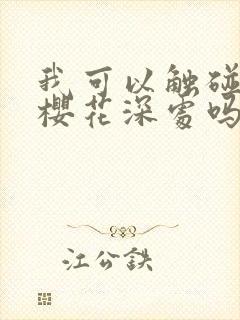 我可以触碰
樱花深处吗
江公铁